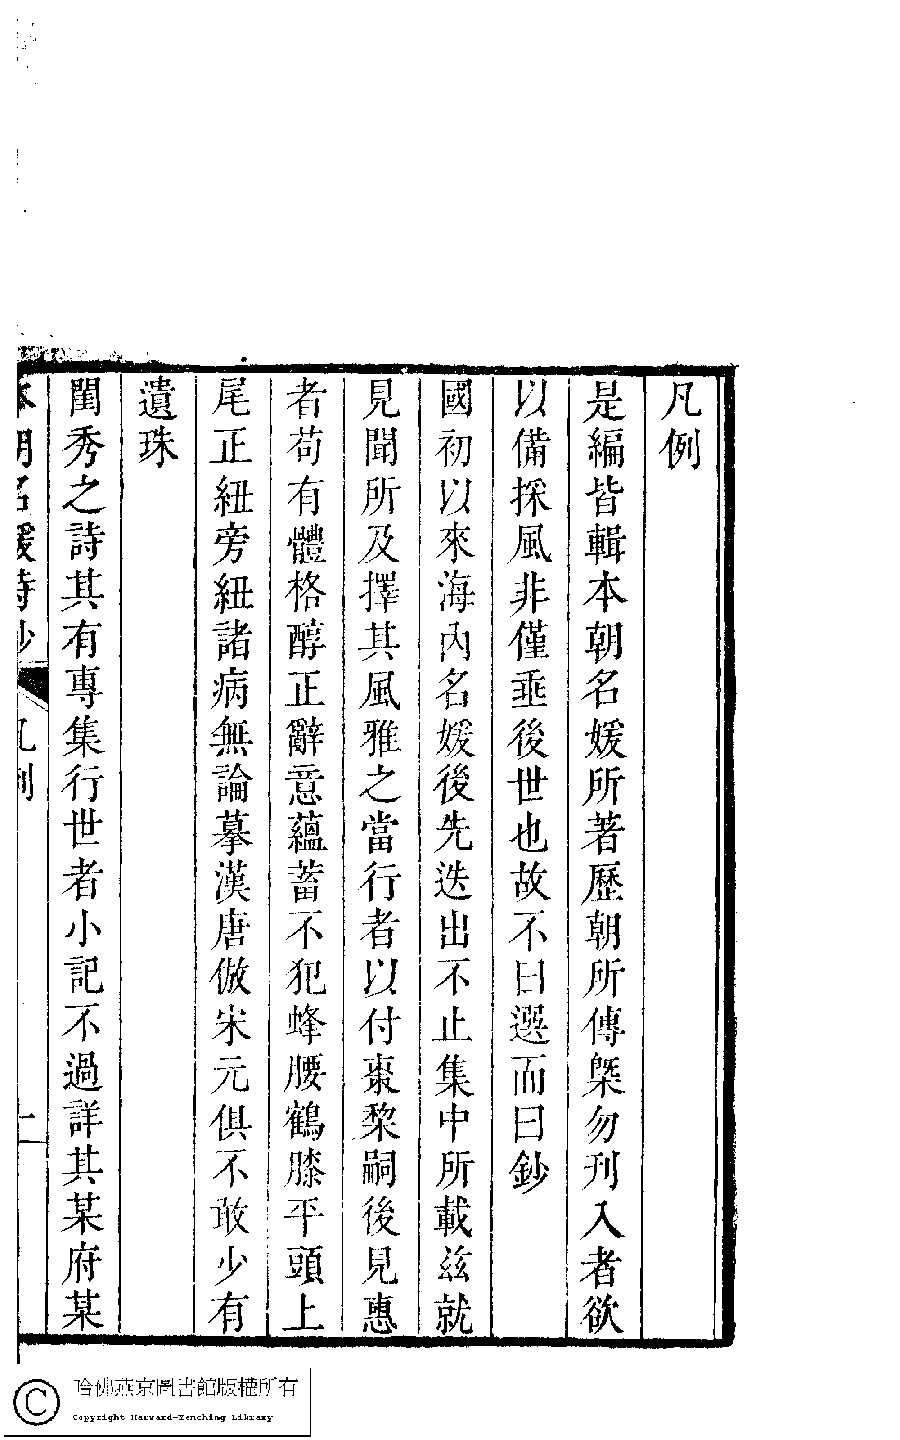 凡例
是編皆輯本朝名媛所著歷朝所傳槩勿刊入者欲
以備採風非僅垂後世也故不曰選而曰鈔
國初以來海內名媛後先迭出不止集中所載茲就
見聞所及擇其風雅之當行者以付棗棃嗣後見惠
者苟有體格醇正辭意蘊蓄不犯蜂腰鶴膝平頭上
尾正紐旁紐諸病無論摹漢唐倣宋元俱不敢少有
遺珠
閨秀之詩其有專集行世者小記不過詳其某府某
本朝名媛詩鈔 凡例 上
哈佛燕京圖書館版權所有
Copyright Harvard-Yenching Library